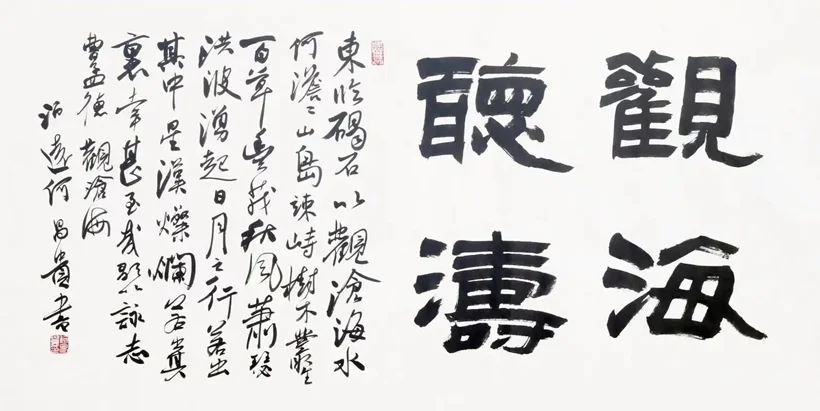 觀海
聽濤
東臨碣石以觀滄海水
何澹〻山島竦峙樹木叢生
百草豐茂秋風蕭瑟
洪波湧起日月之行若出
其中星漢燦爛若其
裏幸甚至哉歌以詠志
曹孟德觀滄海
泊遠何昌貴書